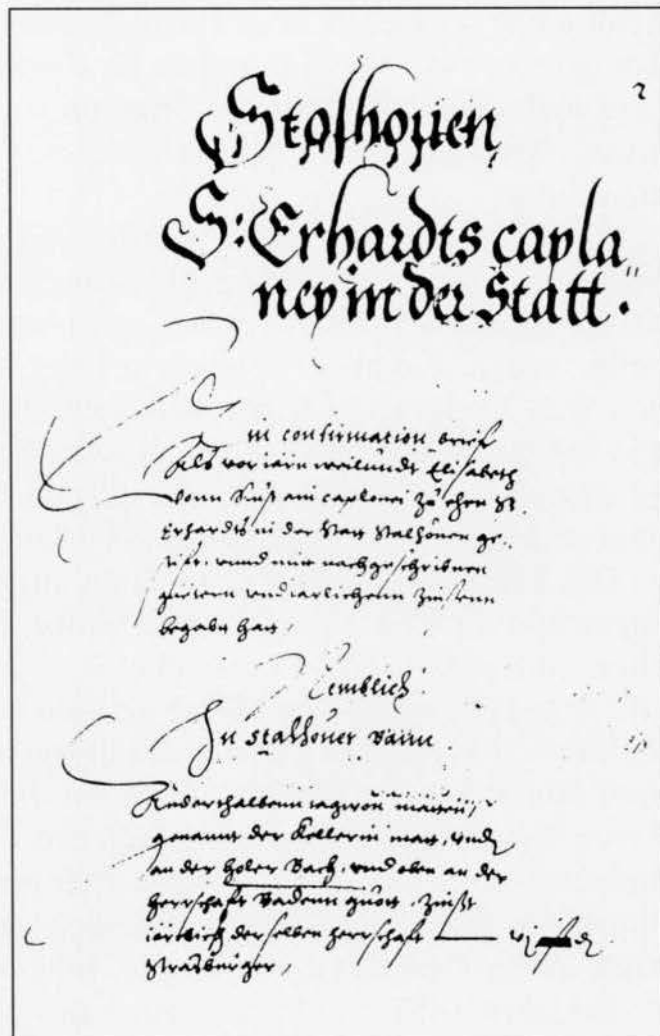 2
Stolhofen
S: Erhardts capla„
ney in der Statt.
Ein confirmation brief
Als vor iarn weilundt Elisabeth
vonn ein caplonei zů ehren St.
Erhardts in der Statt Stalhouen ge„
stift, vnnd mitt nachgeschribnen
guetern vnd iarlichenn Zinsenn
begabt hatt,
Nemblich
In Stalhouer Bann
Anderthalbenn tagwon matten,
genannt der Kellerin matt, vndē
an der Holer Bach, vnd oben an der
herrschafft Badenn guott, Zinst
iärlich derselben herrschafft —
Strasburger,